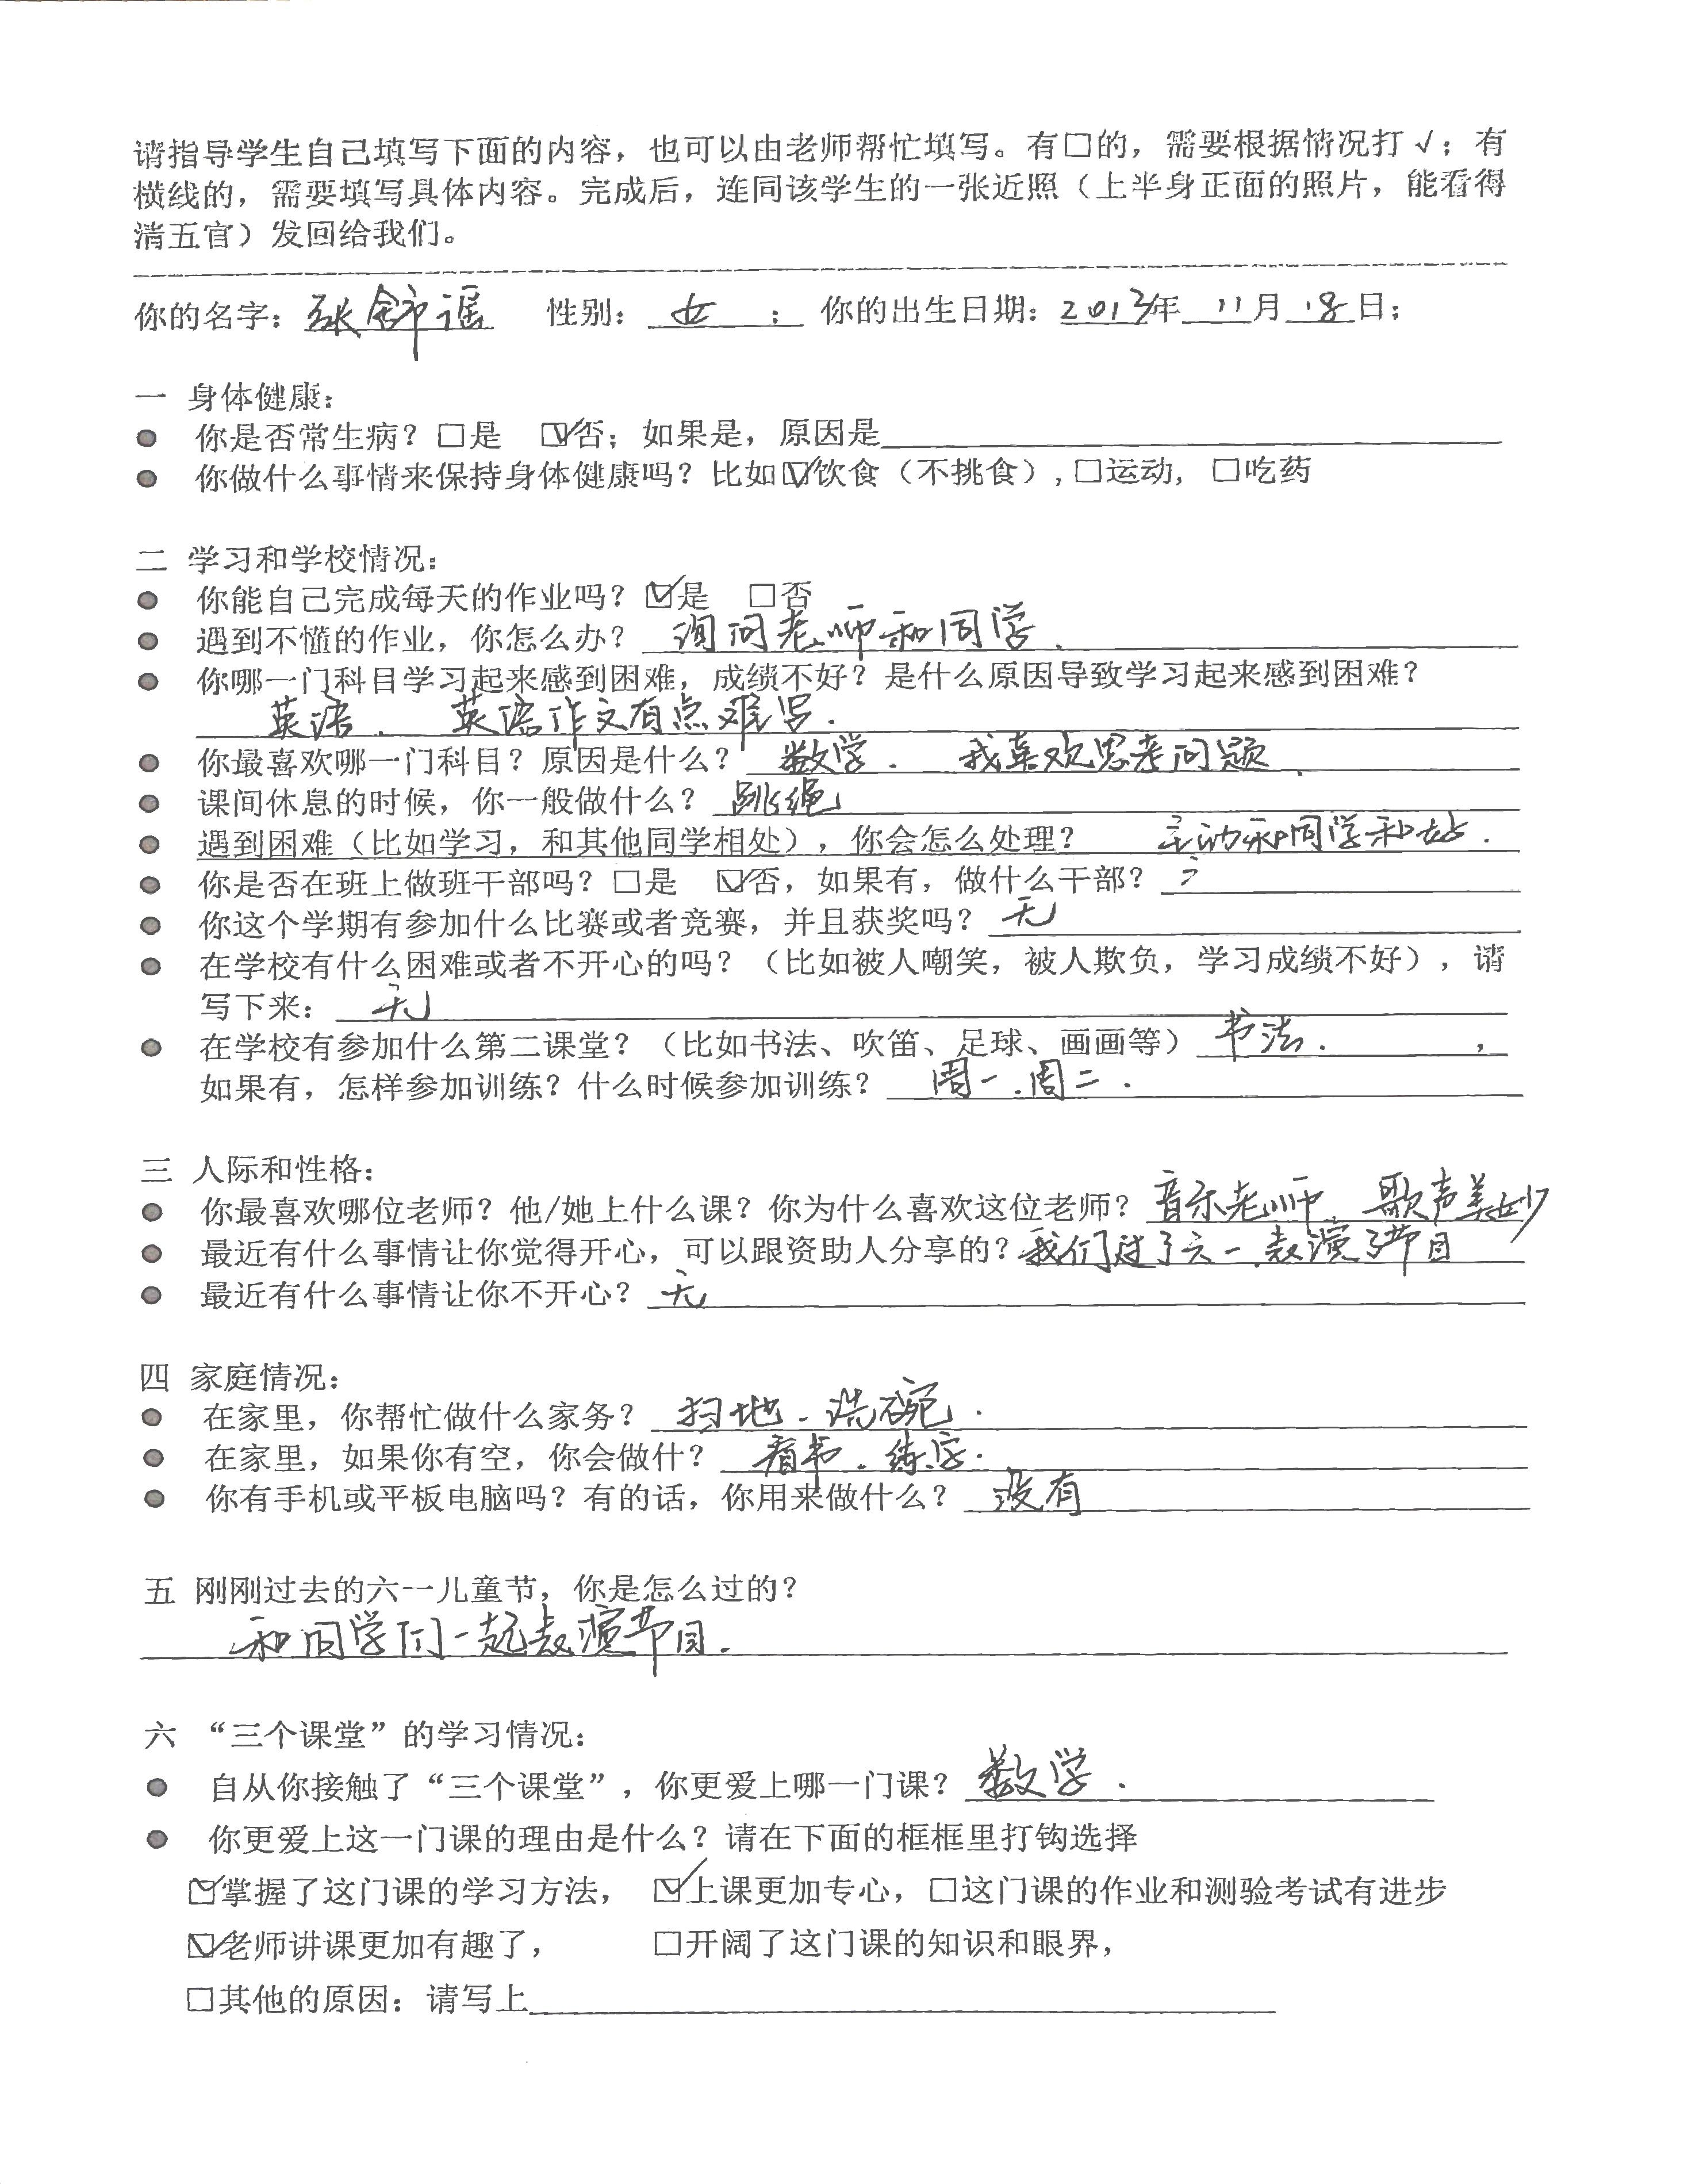 请指导学生自己填写下面的内容，也可以由老师帮忙填写。有□的，需要根据情况打√；有
横线的，需要填写具体内容。完成后，连同该学生的一张近照（上半身正面的照片，能看得
清五官）发回给我们。
你的名字：张舒谣 性别：女； 你的出生日期：2013年11月18日；
一 身体健康：
● 你是否常生病？□是 ☑否；如果是，原因是
● 你做什么事情来保持身体健康吗？比如☑饮食（不挑食），□运动，□吃药
二 学习和学校情况：
● 你能自己完成每天的作业吗？☑是 □否
● 遇到不懂的作业，你怎么办？ 询问老师和同学.
● 你哪一门科目学习起来感到困难，成绩不好？是什么原因导致学习起来感到困难？
英语. 英语作文有点难写.
● 你最喜欢哪一门科目？原因是什么？ 数学. 我喜欢思考问题.
● 课间休息的时候，你一般做什么？ 跳绳
● 遇到困难（比如学习，和其他同学相处），你会怎么处理？ 主动和同学和好.
● 你是否在班上做班干部吗？□是 ☑否，如果有，做什么干部？
● 你这个学期有参加什么比赛或者竞赛，并且获奖吗？ 无
● 在学校有什么困难或者不开心的吗？（比如被人嘲笑，被人欺负，学习成绩不好），请
写下来： 无
● 在学校有参加什么第二课堂？（比如书法、吹笛、足球、画画等） 书法. ，
如果有，怎样参加训练？什么时候参加训练？ 周一.周二.
三 人际和性格：
● 你最喜欢哪位老师？他/她上什么课？你为什么喜欢这位老师？音乐老师. 歌声美妙
● 最近有什么事情让你觉得开心，可以跟资助人分享的？我们过了六一.表演了节目
● 最近有什么事情让你不开心？ 无
四 家庭情况：
● 在家里，你帮忙做什么家务？ 扫地.洗碗.
● 在家里，如果你有空，你会做什？ 看书.练字.
● 你有手机或平板电脑吗？有的话，你用来做什么？ 没有
五 刚刚过去的六一儿童节，你是怎么过的？
和同学们一起表演节目.
六 “三个课堂”的学习情况：
● 自从你接触了“三个课堂”，你更爱上哪一门课？ 数学.
● 你更爱上这一门课的理由是什么？请在下面的框框里打钩选择
☑掌握了这门课的学习方法， ☑上课更加专心，□这门课的作业和测验考试有进步
☑老师讲课更加有趣了， □开阔了这门课的知识和眼界，
□其他的原因：请写上